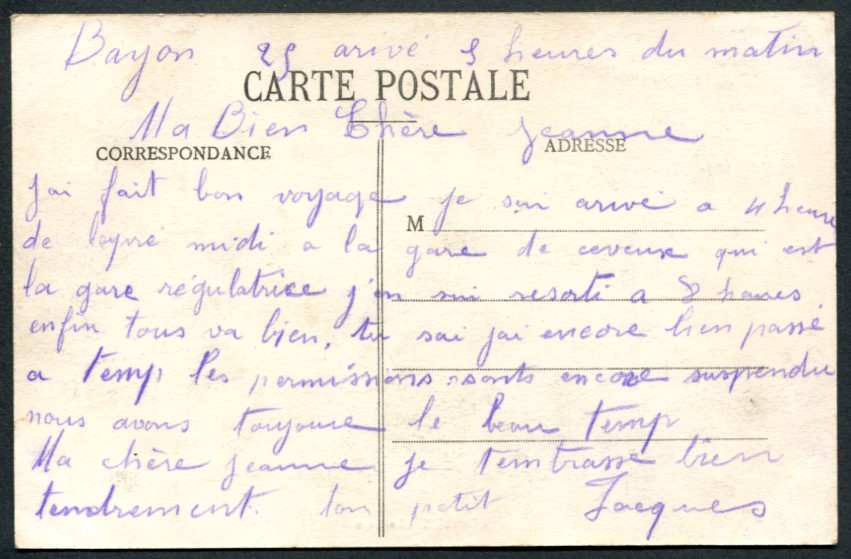 Bayon 25 arivé 5 heures du matin
CARTE POSTALE
Ma Bien Chère Jeanne
CORRESPONDANCE
ADRESSE
J'ai fait bon voyage je sui arivé a 4 heure
M
de leprè midi a la gare de ceveux qui est
la gare régulatrice j'en sui resorti a 8 heures
enfin tous va bien, tu sai jai encore bien passé
a temp les permissions sonts encore suspendu
nous avons toujours le beau temp
Ma chère Jeanne je tembrasse bien
tendrement. ton petit Jacques